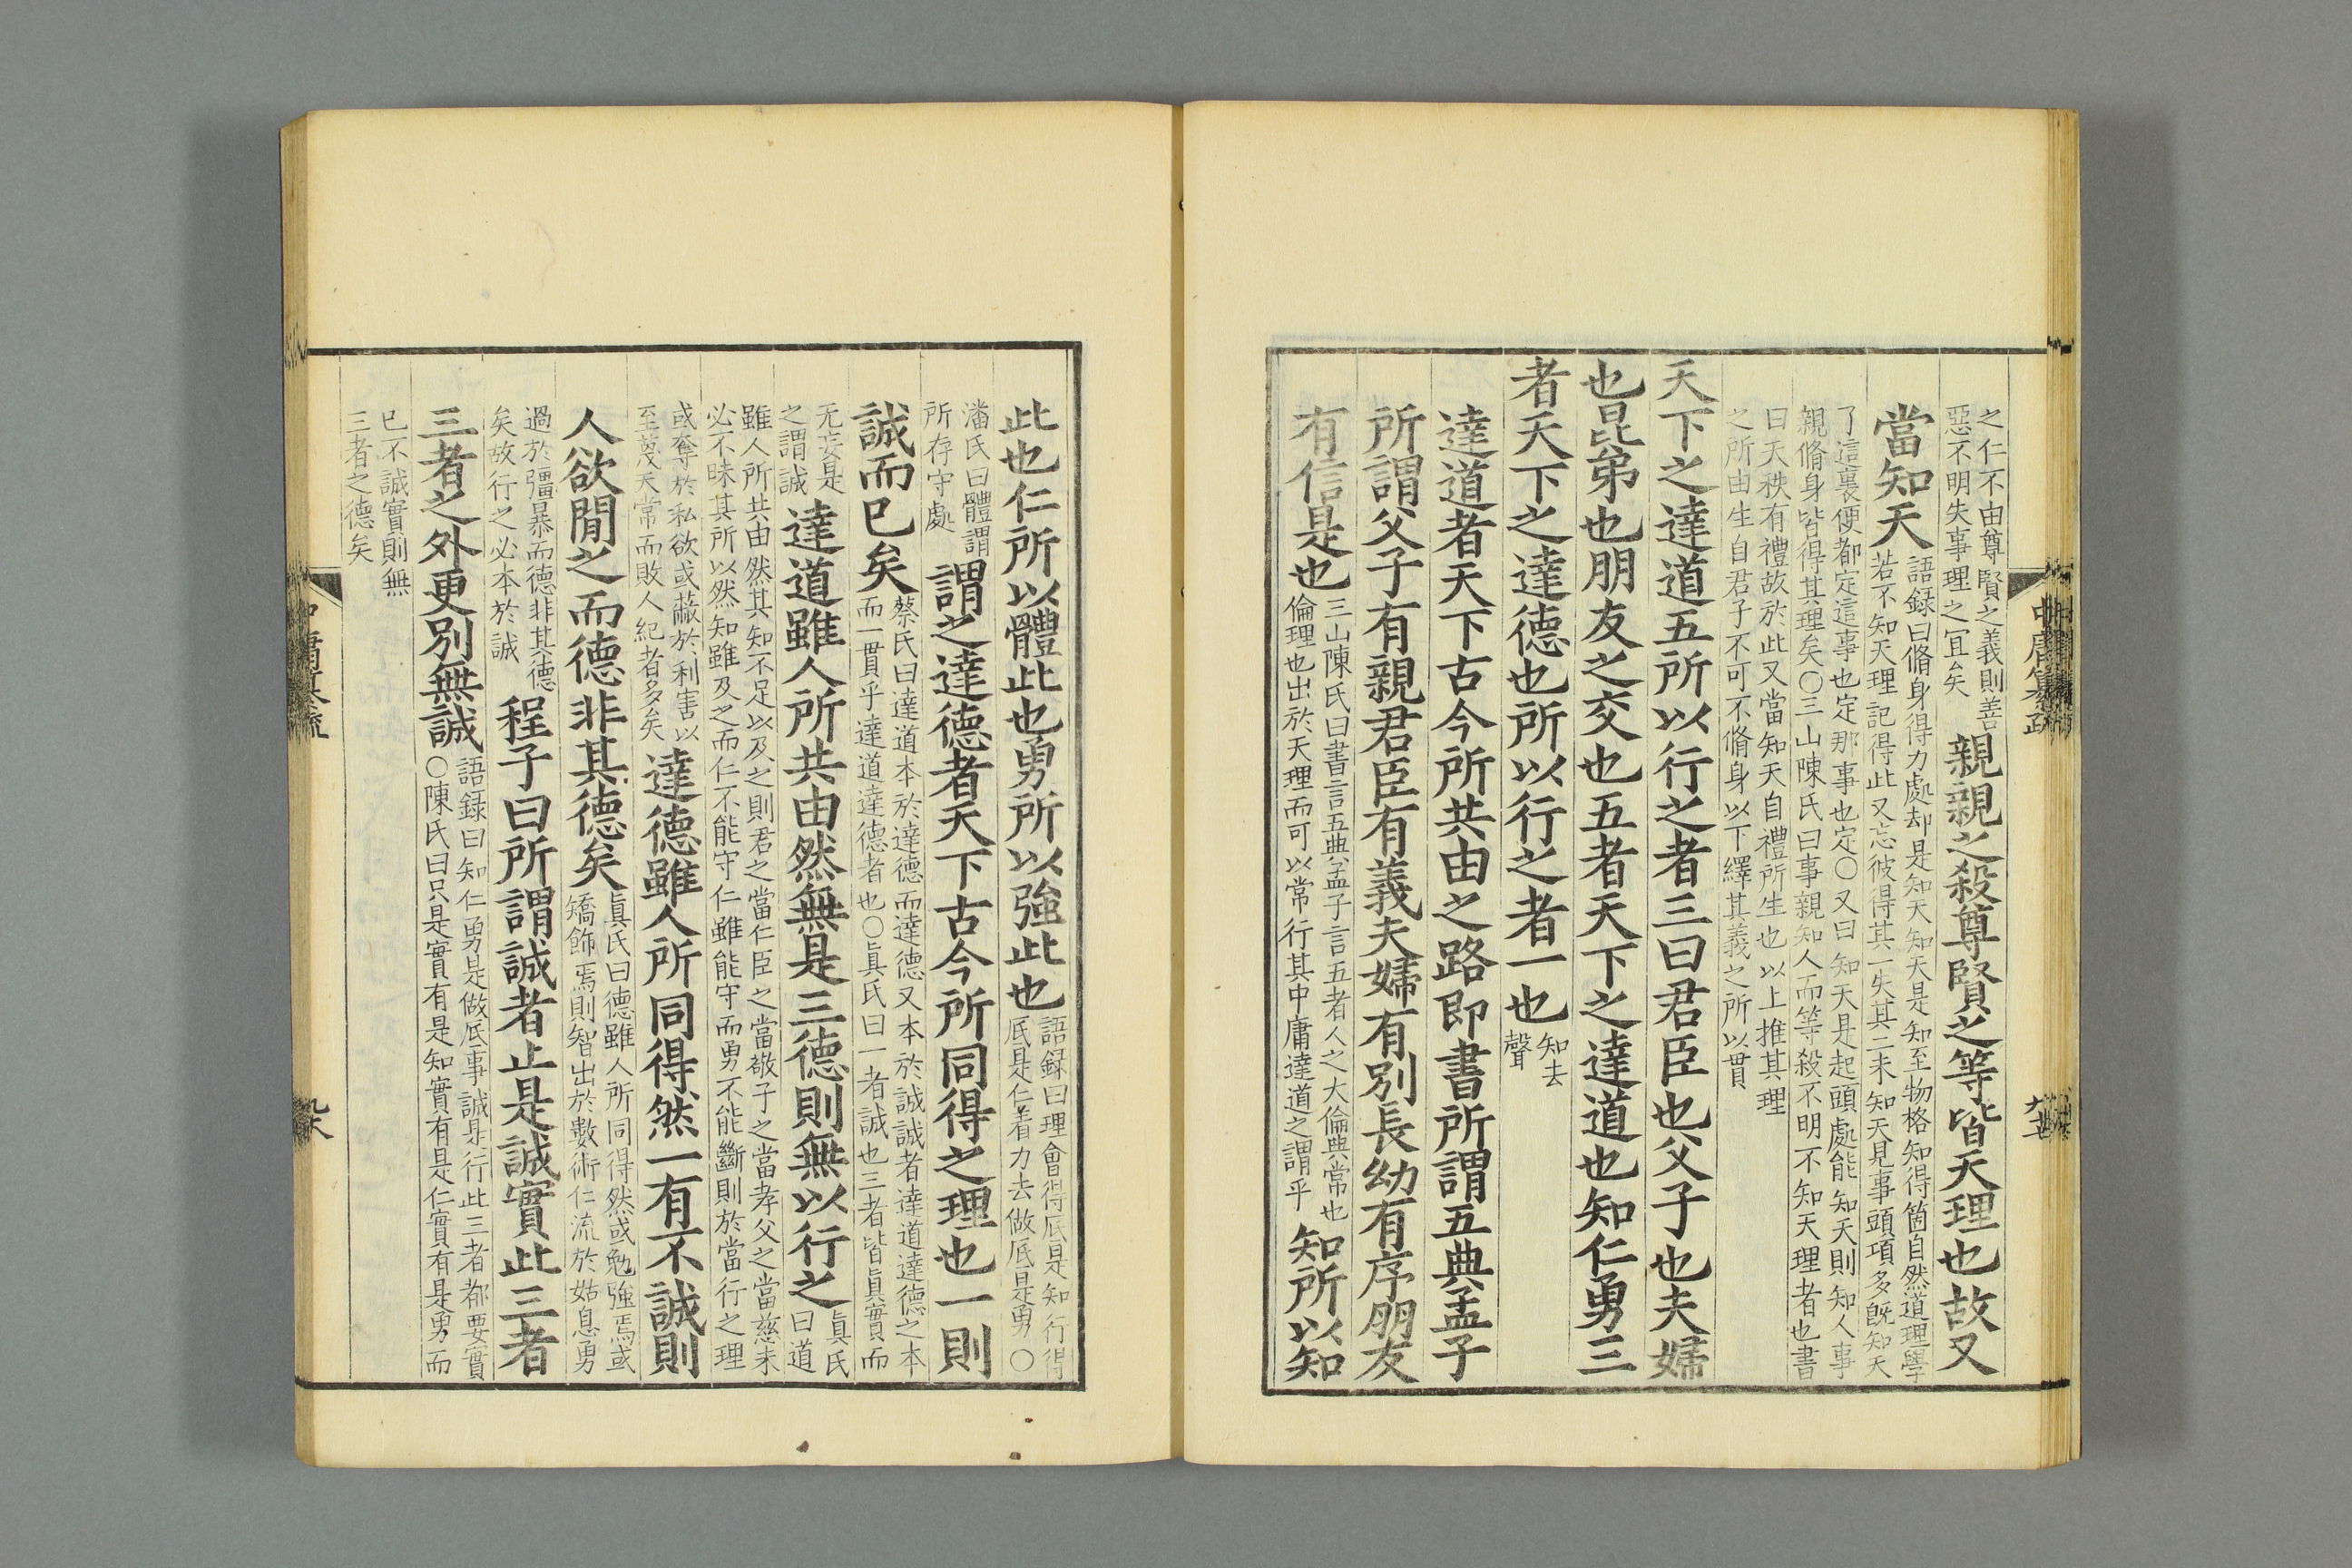 之仁不由尊賢之義則善
惡不明失事理之冝矣
親親之殺尊賢之等皆天理也故又
當知天
語録曰脩身得力處却是知天知天是知至物格知得箇自然道理學
若不知天理記得此又忘彼得其一失其二未知天見事頭項多旣知天
了這裏便都定這事也定那事也定〇又曰知天是起頭處能知天則知人事
親脩身皆得其理矣〇三山陳氏曰事親知人而等殺不明不知天理者也書
曰天秩有禮故於此又當知天自禮所生也以上推其理
之所由生自君子不可不脩身以下繹其義之所以貫
天下之達道五所以行之者三曰君臣也父子也夫婦
也昆弟也朋友之交也五者天下之達道也知仁勇三
者天下之達德也所以行之者一也
知去
聲
達道者天下古今所共由之路即書所謂五典孟子
所謂父子有親君臣有義夫婦有別長幼有序朋友
有信是也
三山陳氏曰書言五典孟子言五者人之大倫典常也
倫理也出於天理而可以常行其中庸達道之謂乎
知所以知
中庸纂疏
此也仁所以體此也勇所以強此也
語録曰理會得厎是知行得
厎是仁着力去做厎是勇〇
潘氏曰體謂
所存守處
謂之達德者天下古今所同得之理也一則
誠而已矣
蔡氏曰達道本於達德而達德又本於誠誠者達道達德之本
而一貫乎達道達德者也〇眞氏曰一者誠也三者皆眞實而
无妄是
之謂誠
達道雖人所共由然無是三德則無以行之
眞氏
曰道
雖人所共由然其知不足以及之則君之當仁臣之當敬子之當孝父之當慈未
必不昧其所以然知雖及之而仁不能守仁雖能守而勇不能斷則於當行之理
或奪於私欲或蔽於利害以
至蔑天常而敗人紀者多矣
達德雖人所同得然一有不誠則
人欲間之而德非其德矣
眞氏曰德雖人所同得然或勉強焉或
矯飾焉則智出於數術仁流於姑息勇
過於彊暴而德非其德
矣故行之必本於誠
程子曰所謂誠者止是誠實此三者
三者之外更別無誠
語録曰知仁勇是做厎事誠是行此三者都要實
〇陳氏曰只是實有是知實有是仁實有是勇而
已不誠實則無
三者之德矣